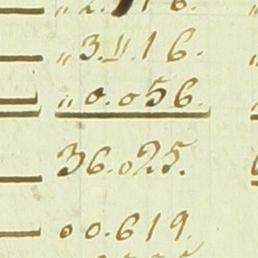 „3.11.16.
„0.056.
36.025.
00.619.